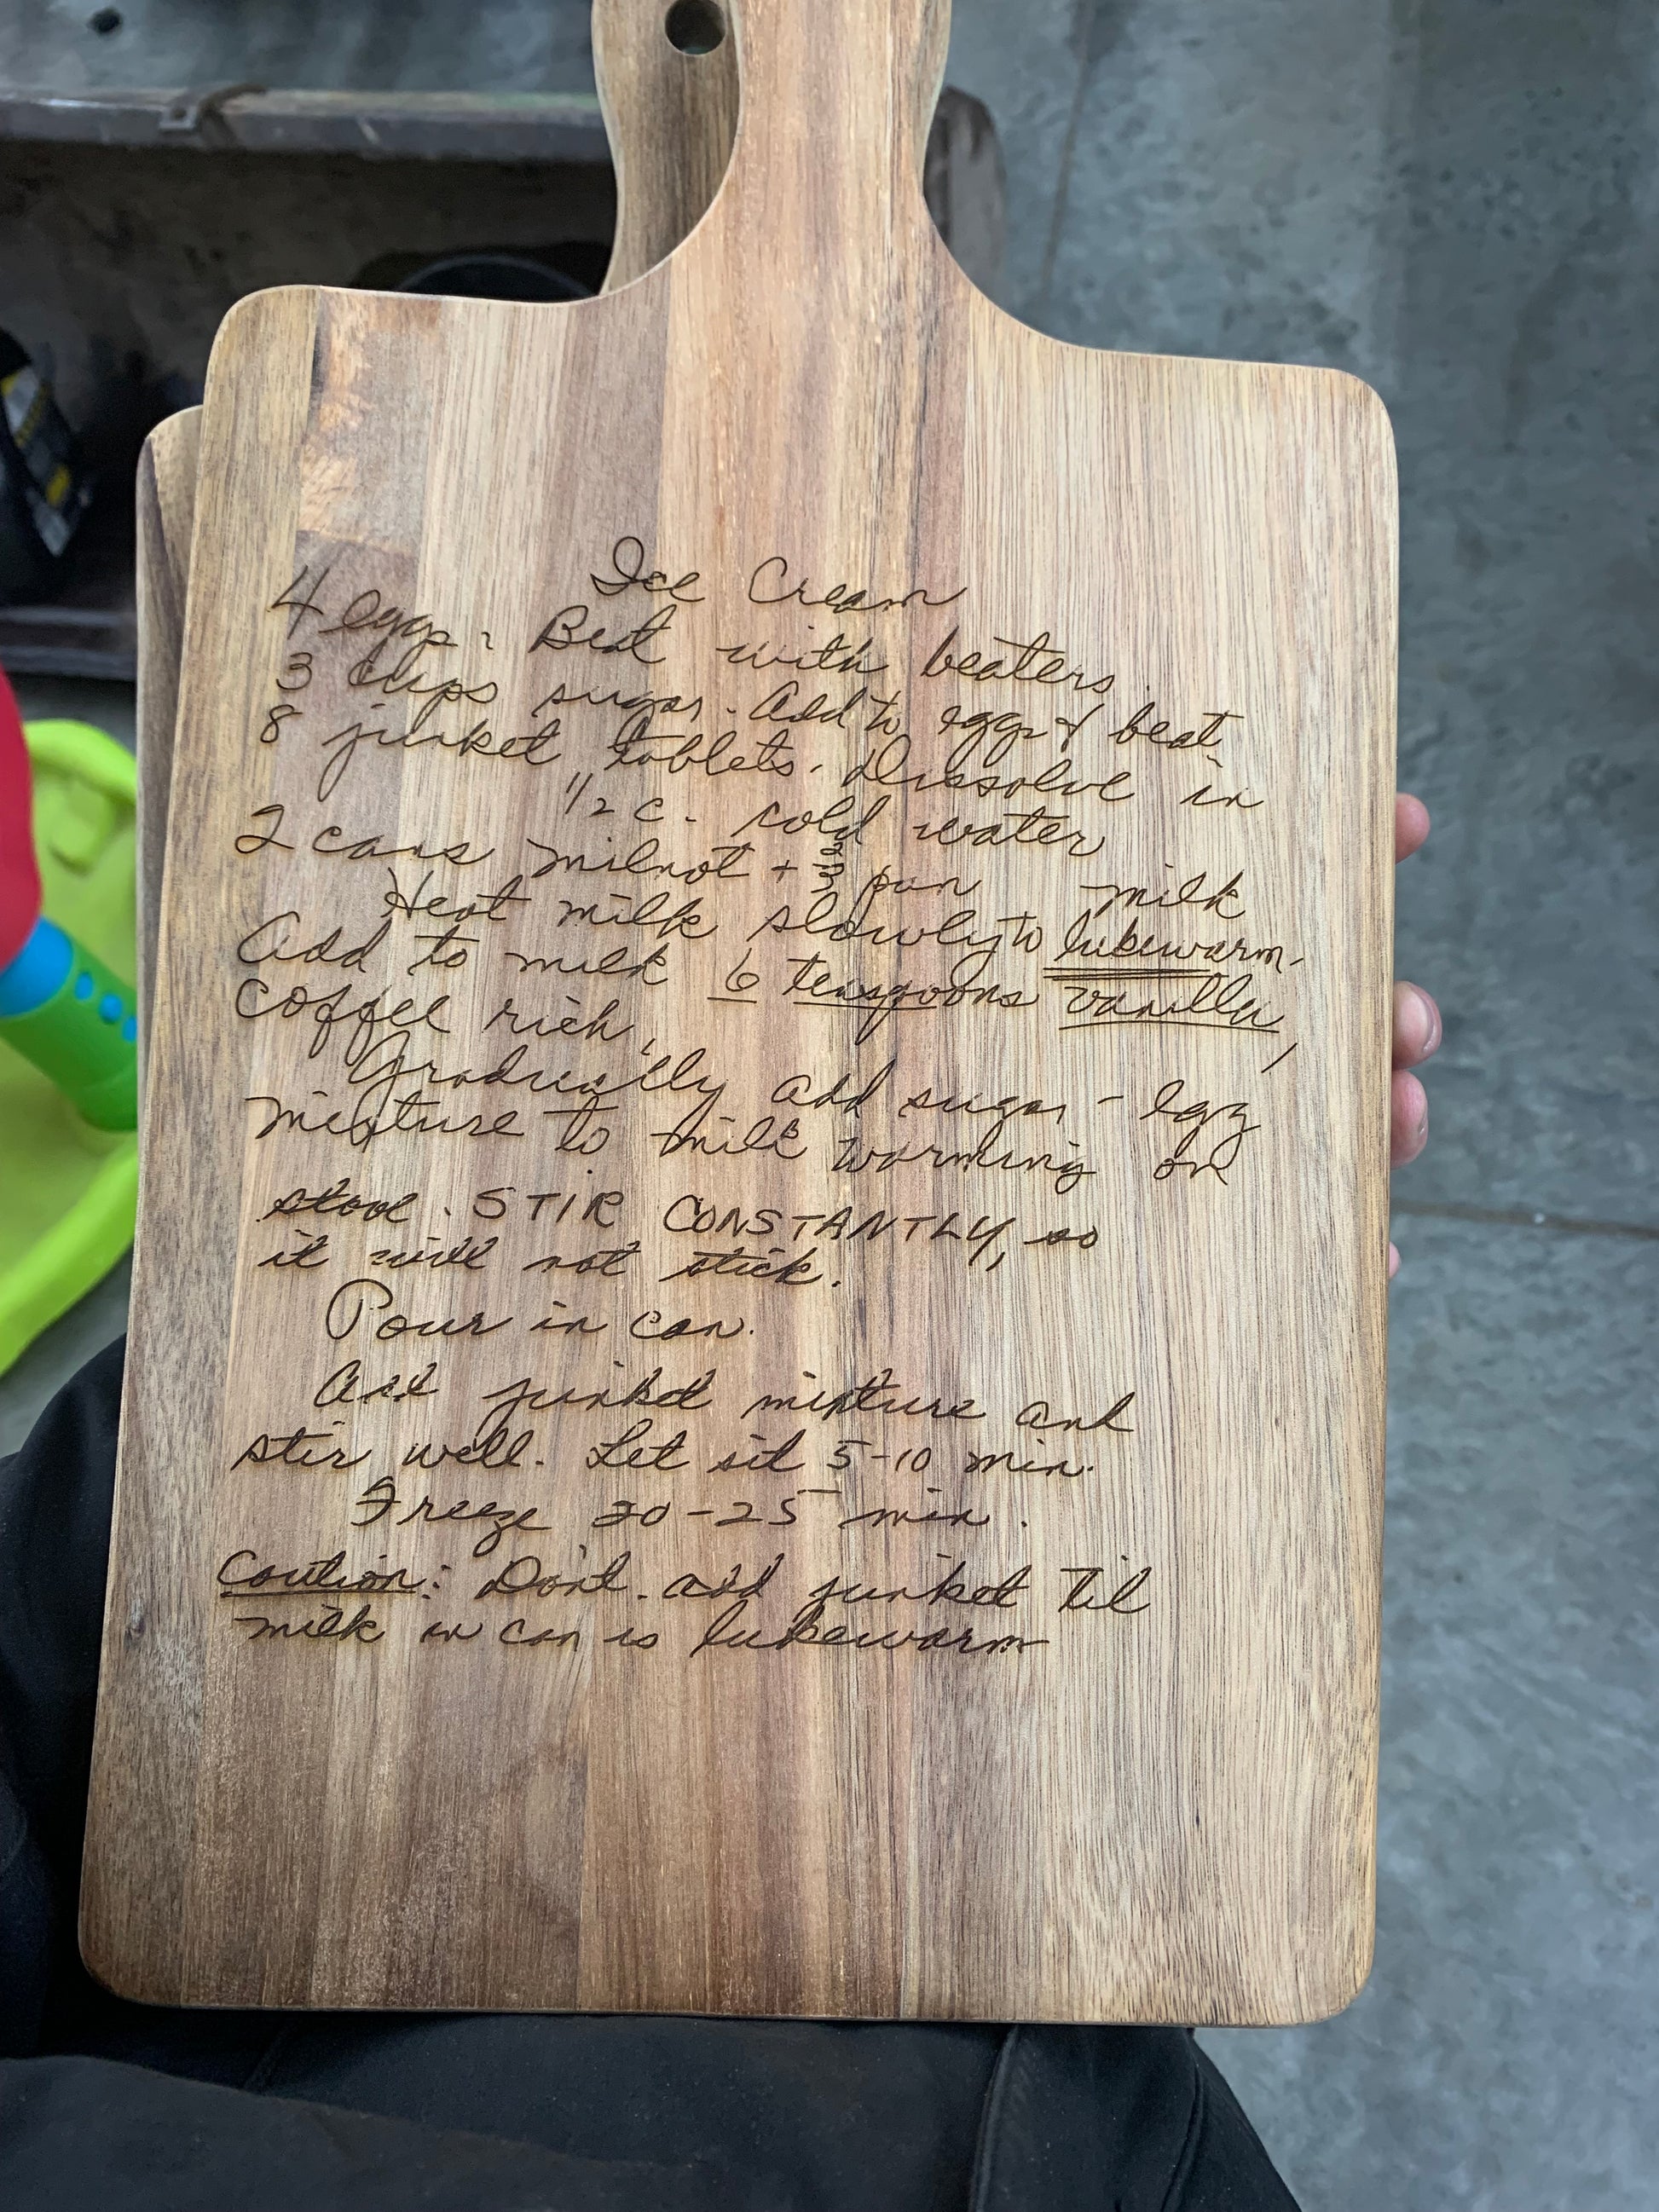 Ice Cream
4 eggs. Beat with beaters.
3 cups sugar. Add to eggs & beat.
8 junket tablets. Dissolve in
1/2 c. cold water
2 cans milnot + pan milk
Heat milk slowly to lukewarm.
Add to milk 6 teaspoons vanilla,
coffee rich,
Gradually add sugar - egg
mixture to milk warming on
stove. STIR CONSTANTLY, so
it will not stick.
Pour in can.
Add junket mixture and
stir well. Let sit 5-10 min.
Freeze 20-25 min.
Caution: Don't add junket til
milk in can is lukewarm